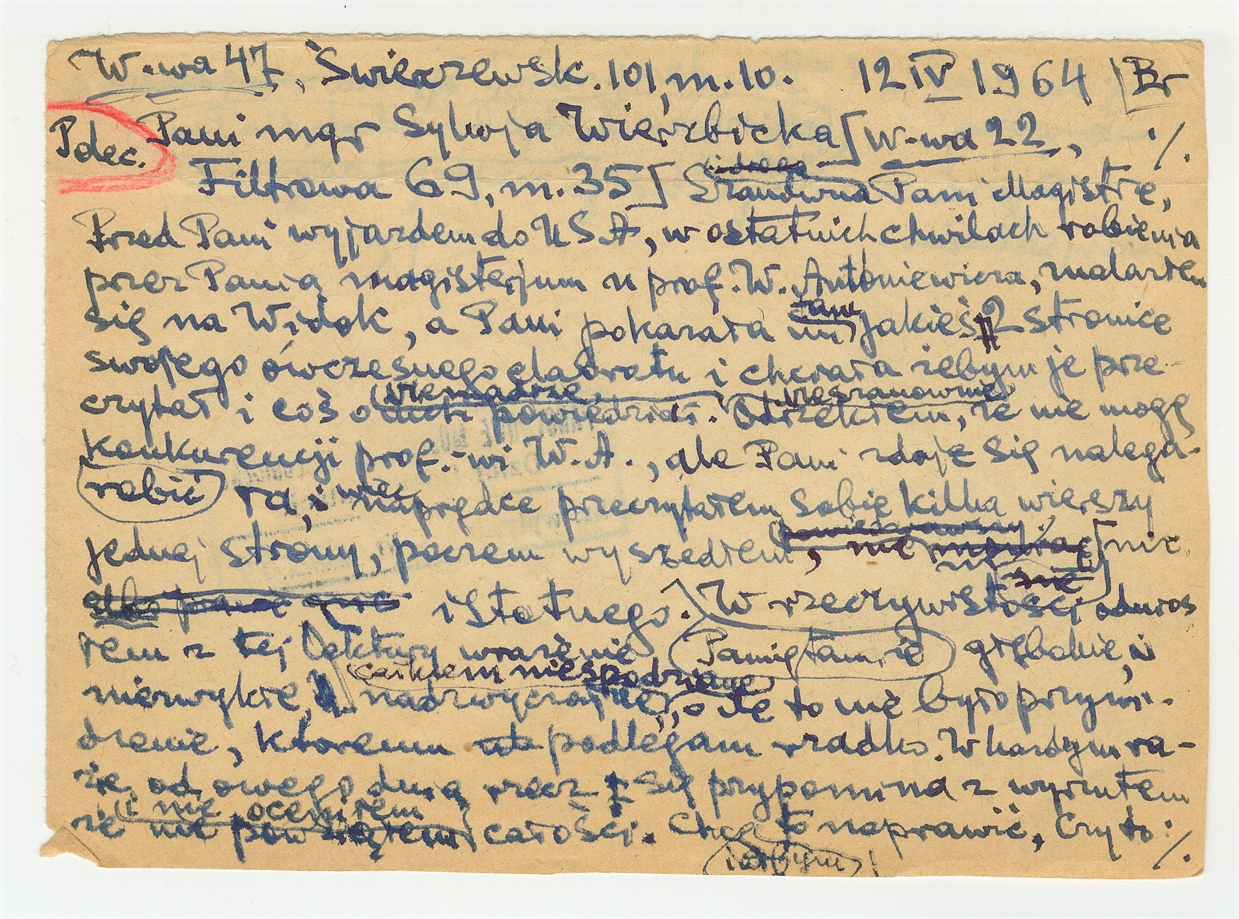 W-wa 47, Świerzewsk. 101, m. 10. 12 IV 1964 Br
Polec. Pani mgr Sylwja Wierzbicka [W-wa 22, ./.
Filtrowa 69, m. 35] Szanowna i droga Pani Magistrze,
Przed Pani wyjazdem do USA, w ostatnich chwilach robienia
przez Panią magisterjum u prof. W. Antoniewicza, znalazłem
się na Widok, a Pani pokazała mi tam jakieś 2 stronice
swojego ówczesnego elaboratu i chciała żebym je prze-
czytał i coś niemądrze powiedział. Odrzekłem nieszanownie, że nie mogę
konkurencji prof.-wi W.A., ale Pani zdaje się nalega-
robić ła, i więc naprędce przeczytałem sobie kilka wierszy
jednej strony, poczem wyszedłem, nie nic
istotnego. W rzeczywistości odnios
łem z tej lektury wrażenie Pamiętam, że głębokie, i
niezwykłe, całkiem niespodziane nadzwyczajne, o ile to nie było przywi-
dzenie, któremu podlegam rzadko. W każdym ra-
zie, od owego dnia rzecz się przypomina z wyrzutem
że i nie oceniłem całości. Chcę to naprawić, czyto:
iżbym ./.